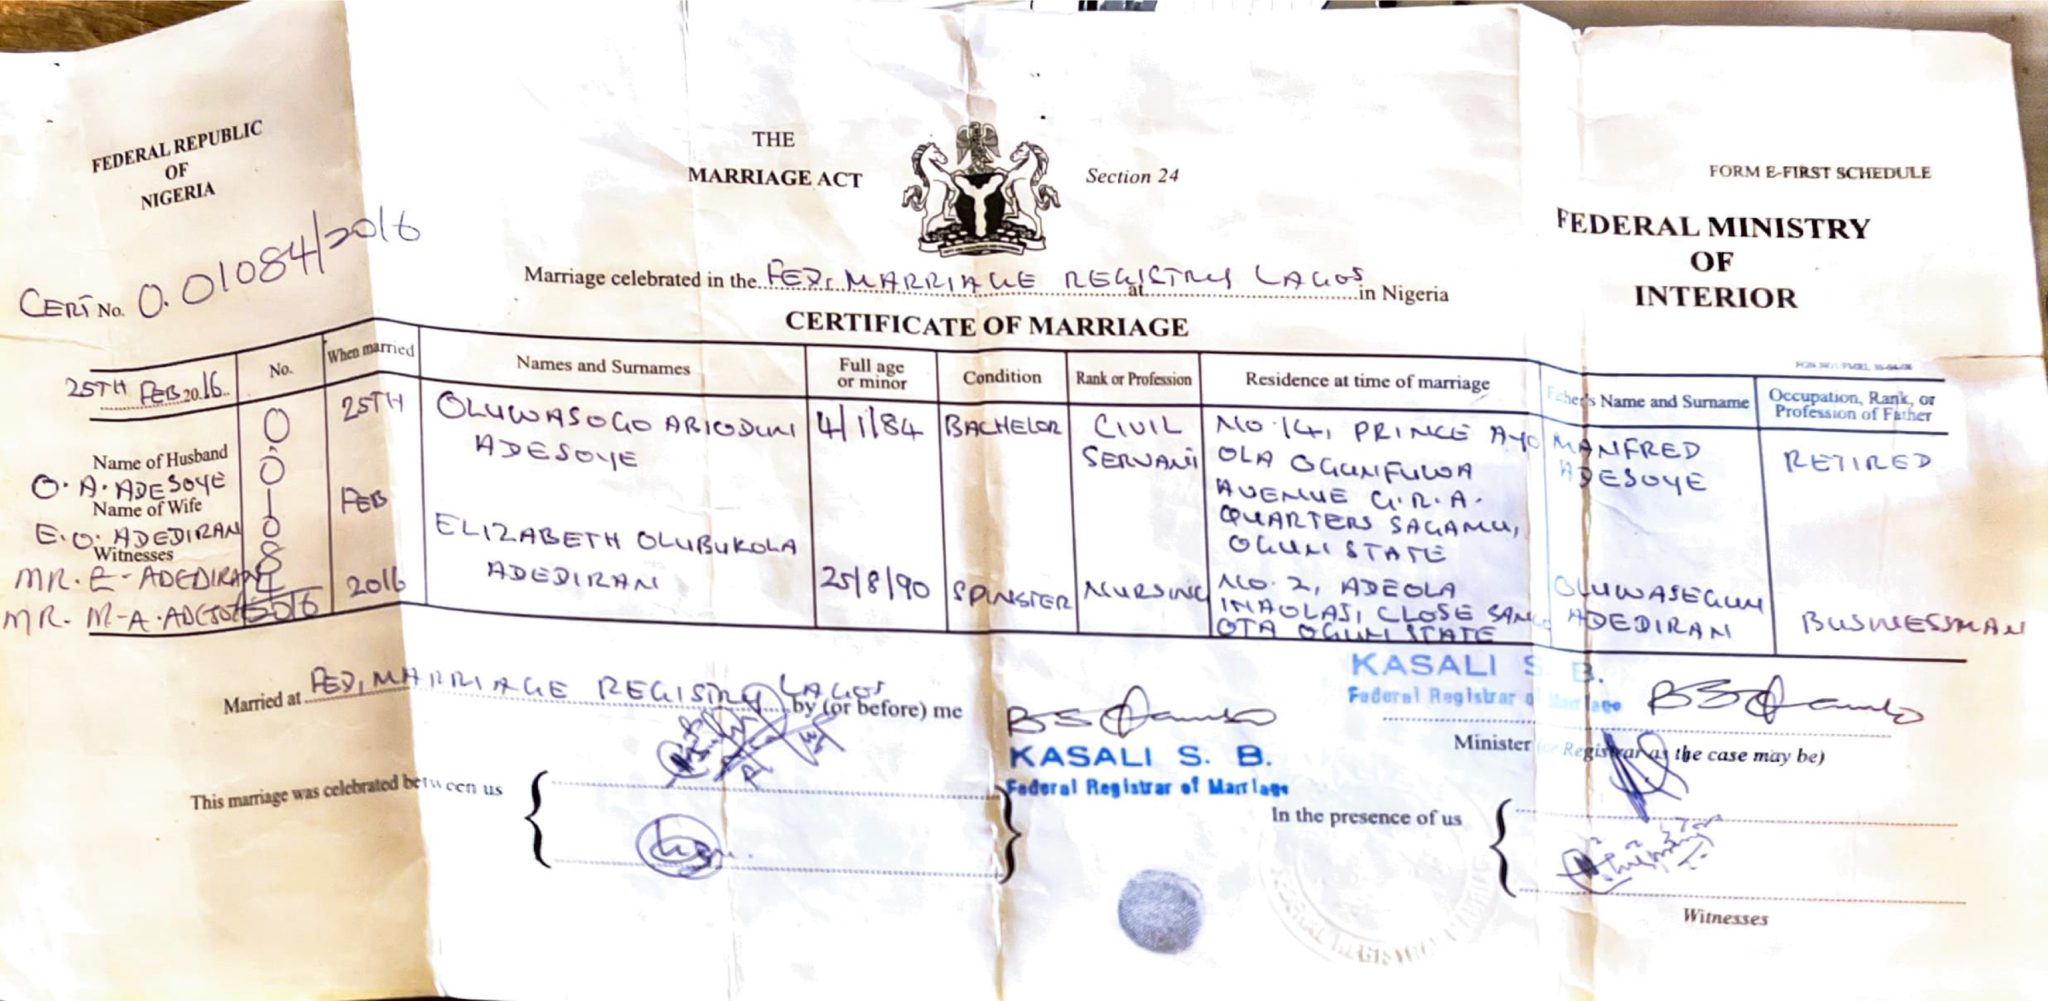 FEDERAL REPUBLIC
OF
NIGERIA
CERT NO. 0.01084/2016
THE
MARRIAGE ACT
Section 24
FORM E-FIRST SCHEDULE
FEDERAL MINISTRY
OF
INTERIOR
Marriage celebrated in the FED. MARRIAGE REGISTRY LAGOS at in Nigeria
CERTIFICATE OF MARRIAGE
25TH FEB 2016
No.
When married
Names and Surnames
Full age
or minor
Condition
Rank or Profession
Residence at time of marriage
Father's Name and Surname
Occupation, Rank, or
Profession of Father
Name of Husband
O. A. ADESOYE
Name of Wife
E. O. ADEDIRAN
Witnesses
MR. E. ADEDIRAN
MR. M. A.
2016
25TH
FEB
2016
OLUWASOGO ABIODUN
ADESOYE
4/1/84
BACHELOR
CIVIL
SERVANT
NO. 14, PRINCE AYO
OLA OGUNFUWA
AVENUE G.R.A.
QUARTERS SAGAMU,
OGUN STATE
MANFRED
ADESOYE
RETIRED
ELIZABETH OLUBUKOLA
ADEDIRAN
25/8/90
SPINSTER
NURSING
NO. 2, ADEOLA
CLOSE
OTA OGUN STATE
OLUWASEGUN
ADEDIRAN
BUSINESSMAN
Married at FED. MARRIAGE REGISTRY LAGOS by (or before) me
KASALI S. B.
Federal Registrar of Marriage
KASALI S. B.
Federal Registrar of Marriage
Minister (or Registrar as the case may be)
This marriage was celebrated between us
In the presence of us
Witnesses